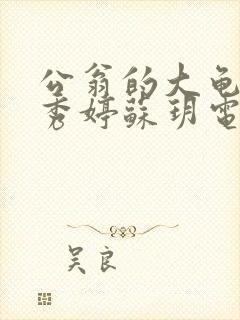 公翁的大龟
秀婷蘇玥電
吴良